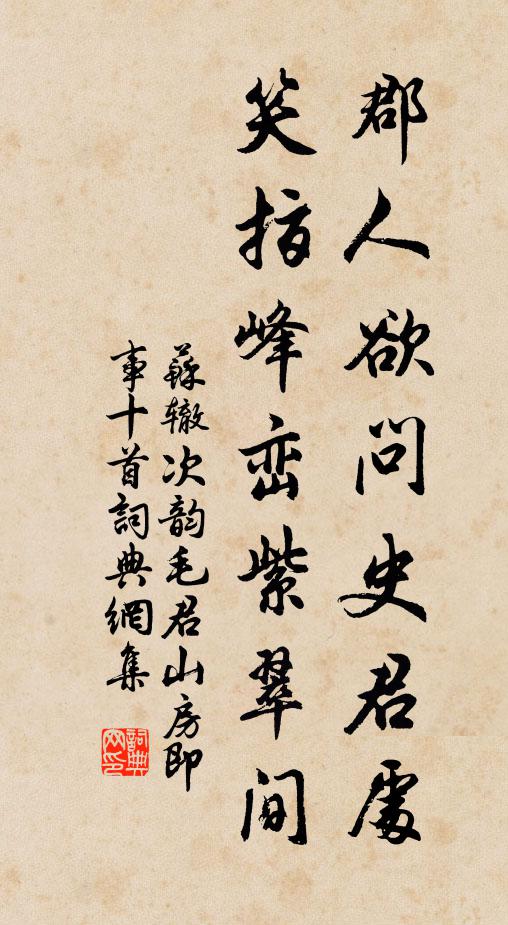 郡人欲问史君處
笑指峰峦紫翠间
蘇辙次韵毛君山房即
事十首詞典網集
詞典
网印